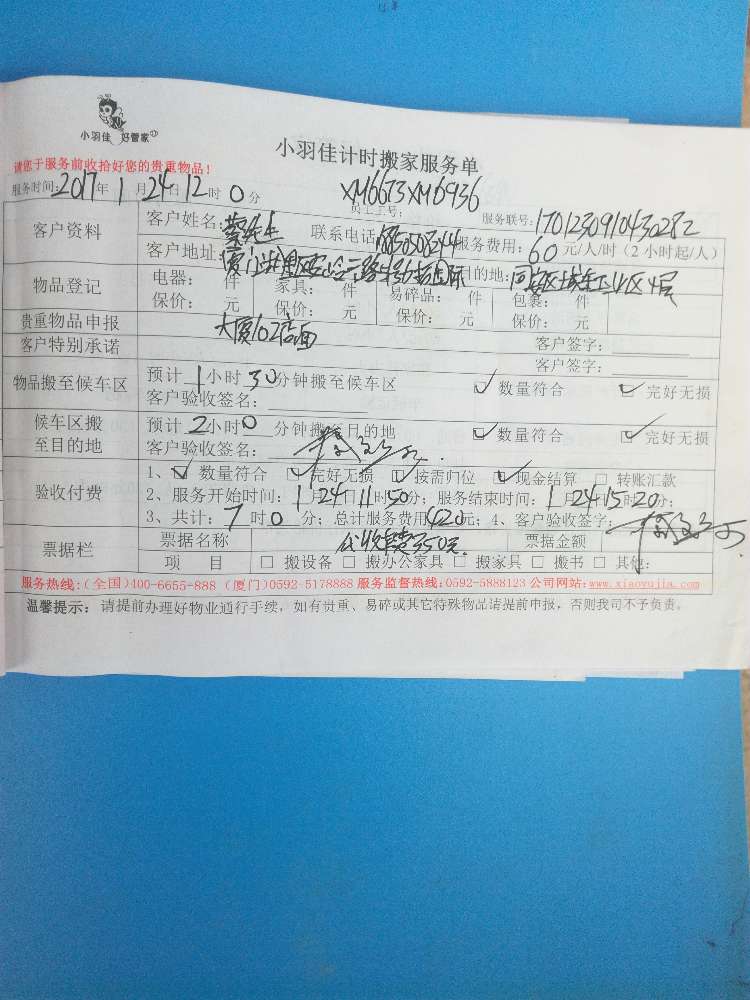 小羽佳 好管家
小羽佳计时搬家服务单
请您于服务前收拾好您的贵重物品！
服务时间:2017年1月24日12时0分
XM6673XM6936
员工工号:
服务联号:1701230910430282
客户资料
客户姓名:
联系电话
服务费用:60元/人/时(2小时起/人)
客户地址:
目的地:同安区城东工业区4层
物品登记
电器: 件 家具: 件 易碎品: 件 包裹: 件
保价: 元 保价: 元 保价: 元 保价: 元
贵重物品申报
大厦102店面
客户签字:
客户特别承诺
客户签字:
物品搬至候车区
预计1小时30分钟搬至候车区 ☑数量符合 ☑完好无损
客户验收签名:
候车区搬至目的地
预计2小时0分钟搬至目的地 ☑数量符合 ☑完好无损
客户验收签名:
验收付费
1、☑数量符合 ☑完好无损 ☑按需归位 ☑现金结算 □转账汇款
2、服务开始时间:1月24日11时50分；服务结束时间:1月24日15时20分;
3、共计:7时0分；总计服务费用420元；4、客户验收签字:
票据栏
票据名称
代收 费350元.
票据金额
项 目 □搬设备 □搬办公家具 □搬家具 □搬书 □其他:
服务热线:(全国)400-6655-888 (厦门)0592-5178888 服务监督热线:0592-5888123 公司网站:www.xiaoyujia.com
温馨提示: 请提前办理好物业通行手续，如有贵重、易碎或其它特殊物品请提前申报，否则我司不予负责。